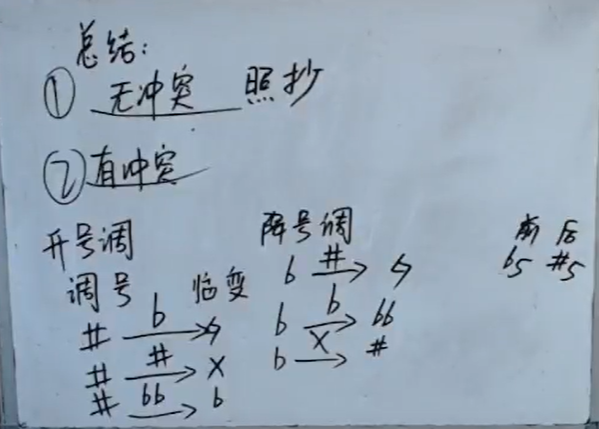 总结:
① 无冲突 照抄
② 有冲突
升号调
调号 临变
# b → ♮
# # → x
# bb → b
降号调
b # → ♮
b b → bb
b x → #
前 后
b5 #5